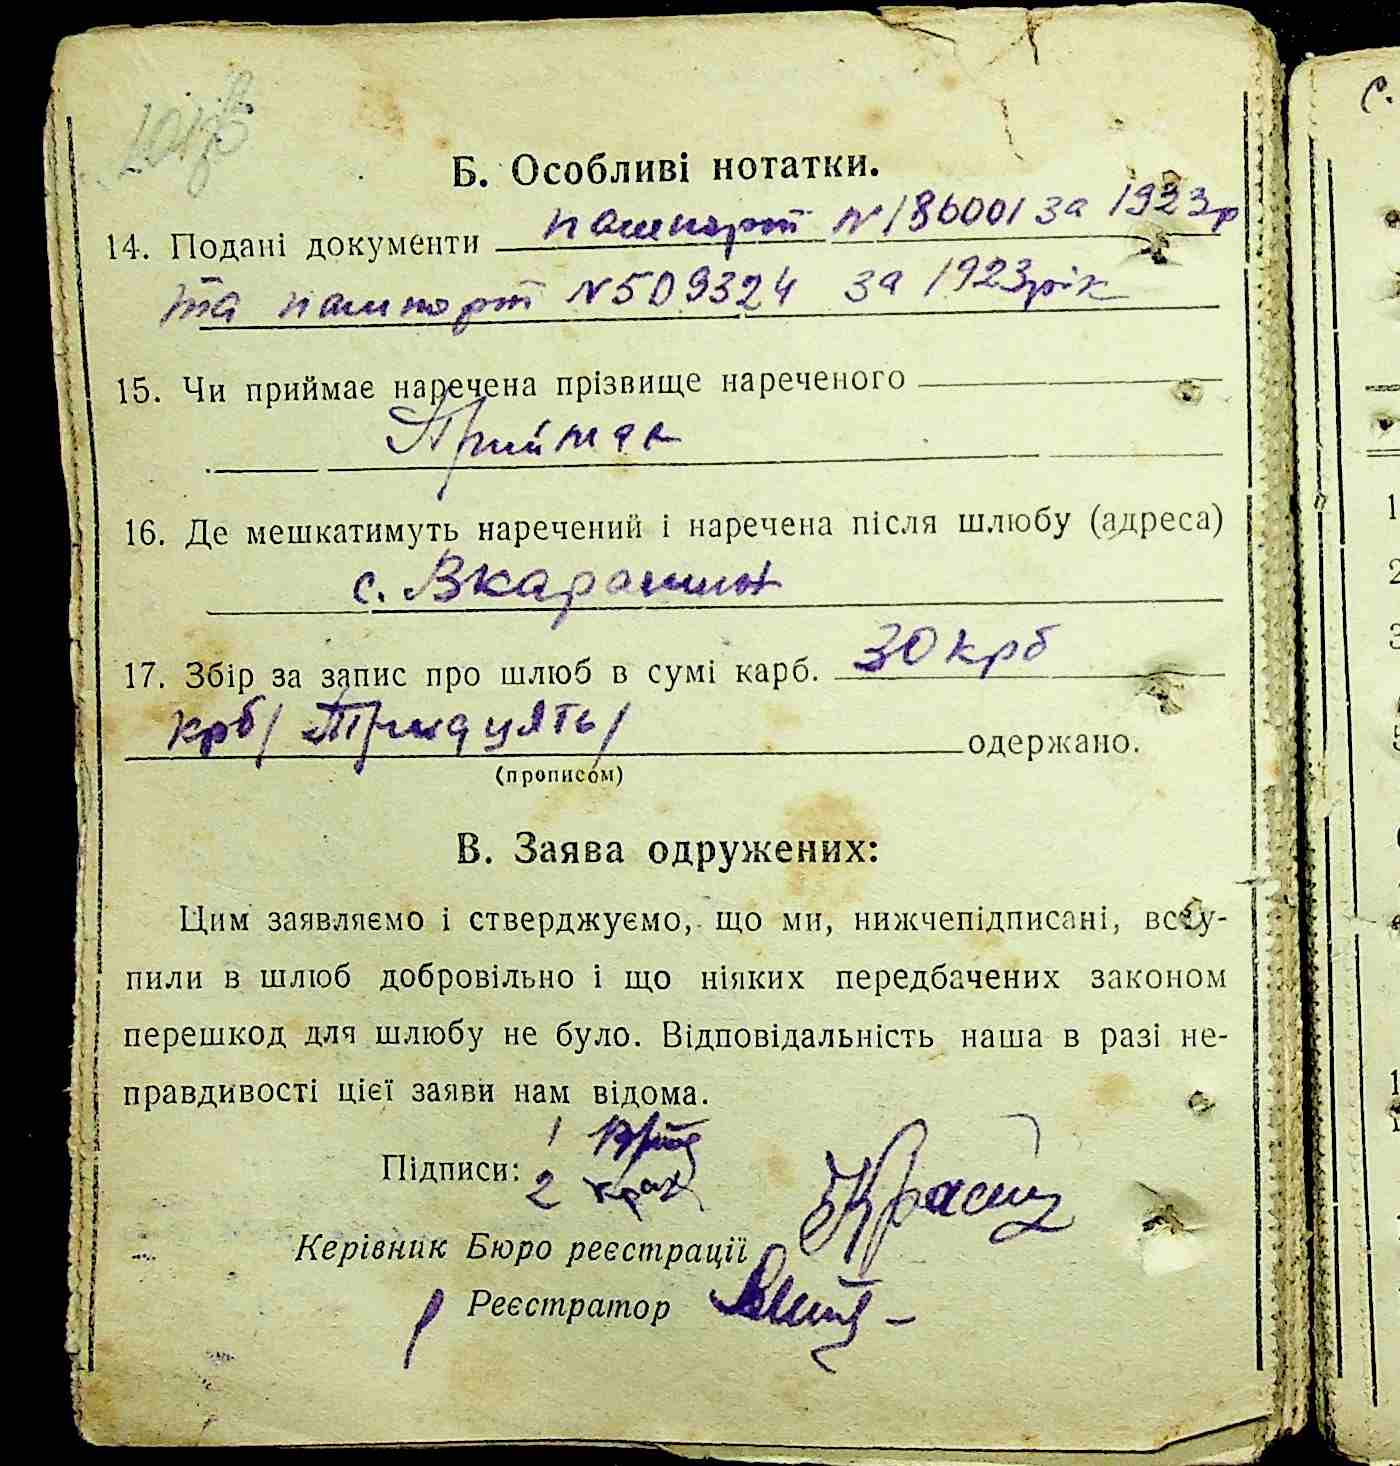 Б. Особливі нотатки.
14. Подані документи пашпорт №186001 за 1923р
та пашпорт №509324 за 1923рік
15. Чи приймає наречена прізвище нареченого
Приймає
16. Де мешкатимуть наречений і наречена після шлюбу (адреса)
с. Вкарашин
17. Збір за запис про шлюб в сумі карб. 30 крб
крб/Тридцять/ одержано.
(прописом)
В. Заява одружених:
Цим заявляємо і стверджуємо, що ми, нижчепідписані, всту-
пили в шлюб добровільно і що ніяких передбачених законом
перешкод для шлюбу не було. Відповідальність наша в разі не-
правдивості цієї заяви нам відома.
1
Підписи:
2
Керівник Бюро реєстрації
Реєстратор
С.